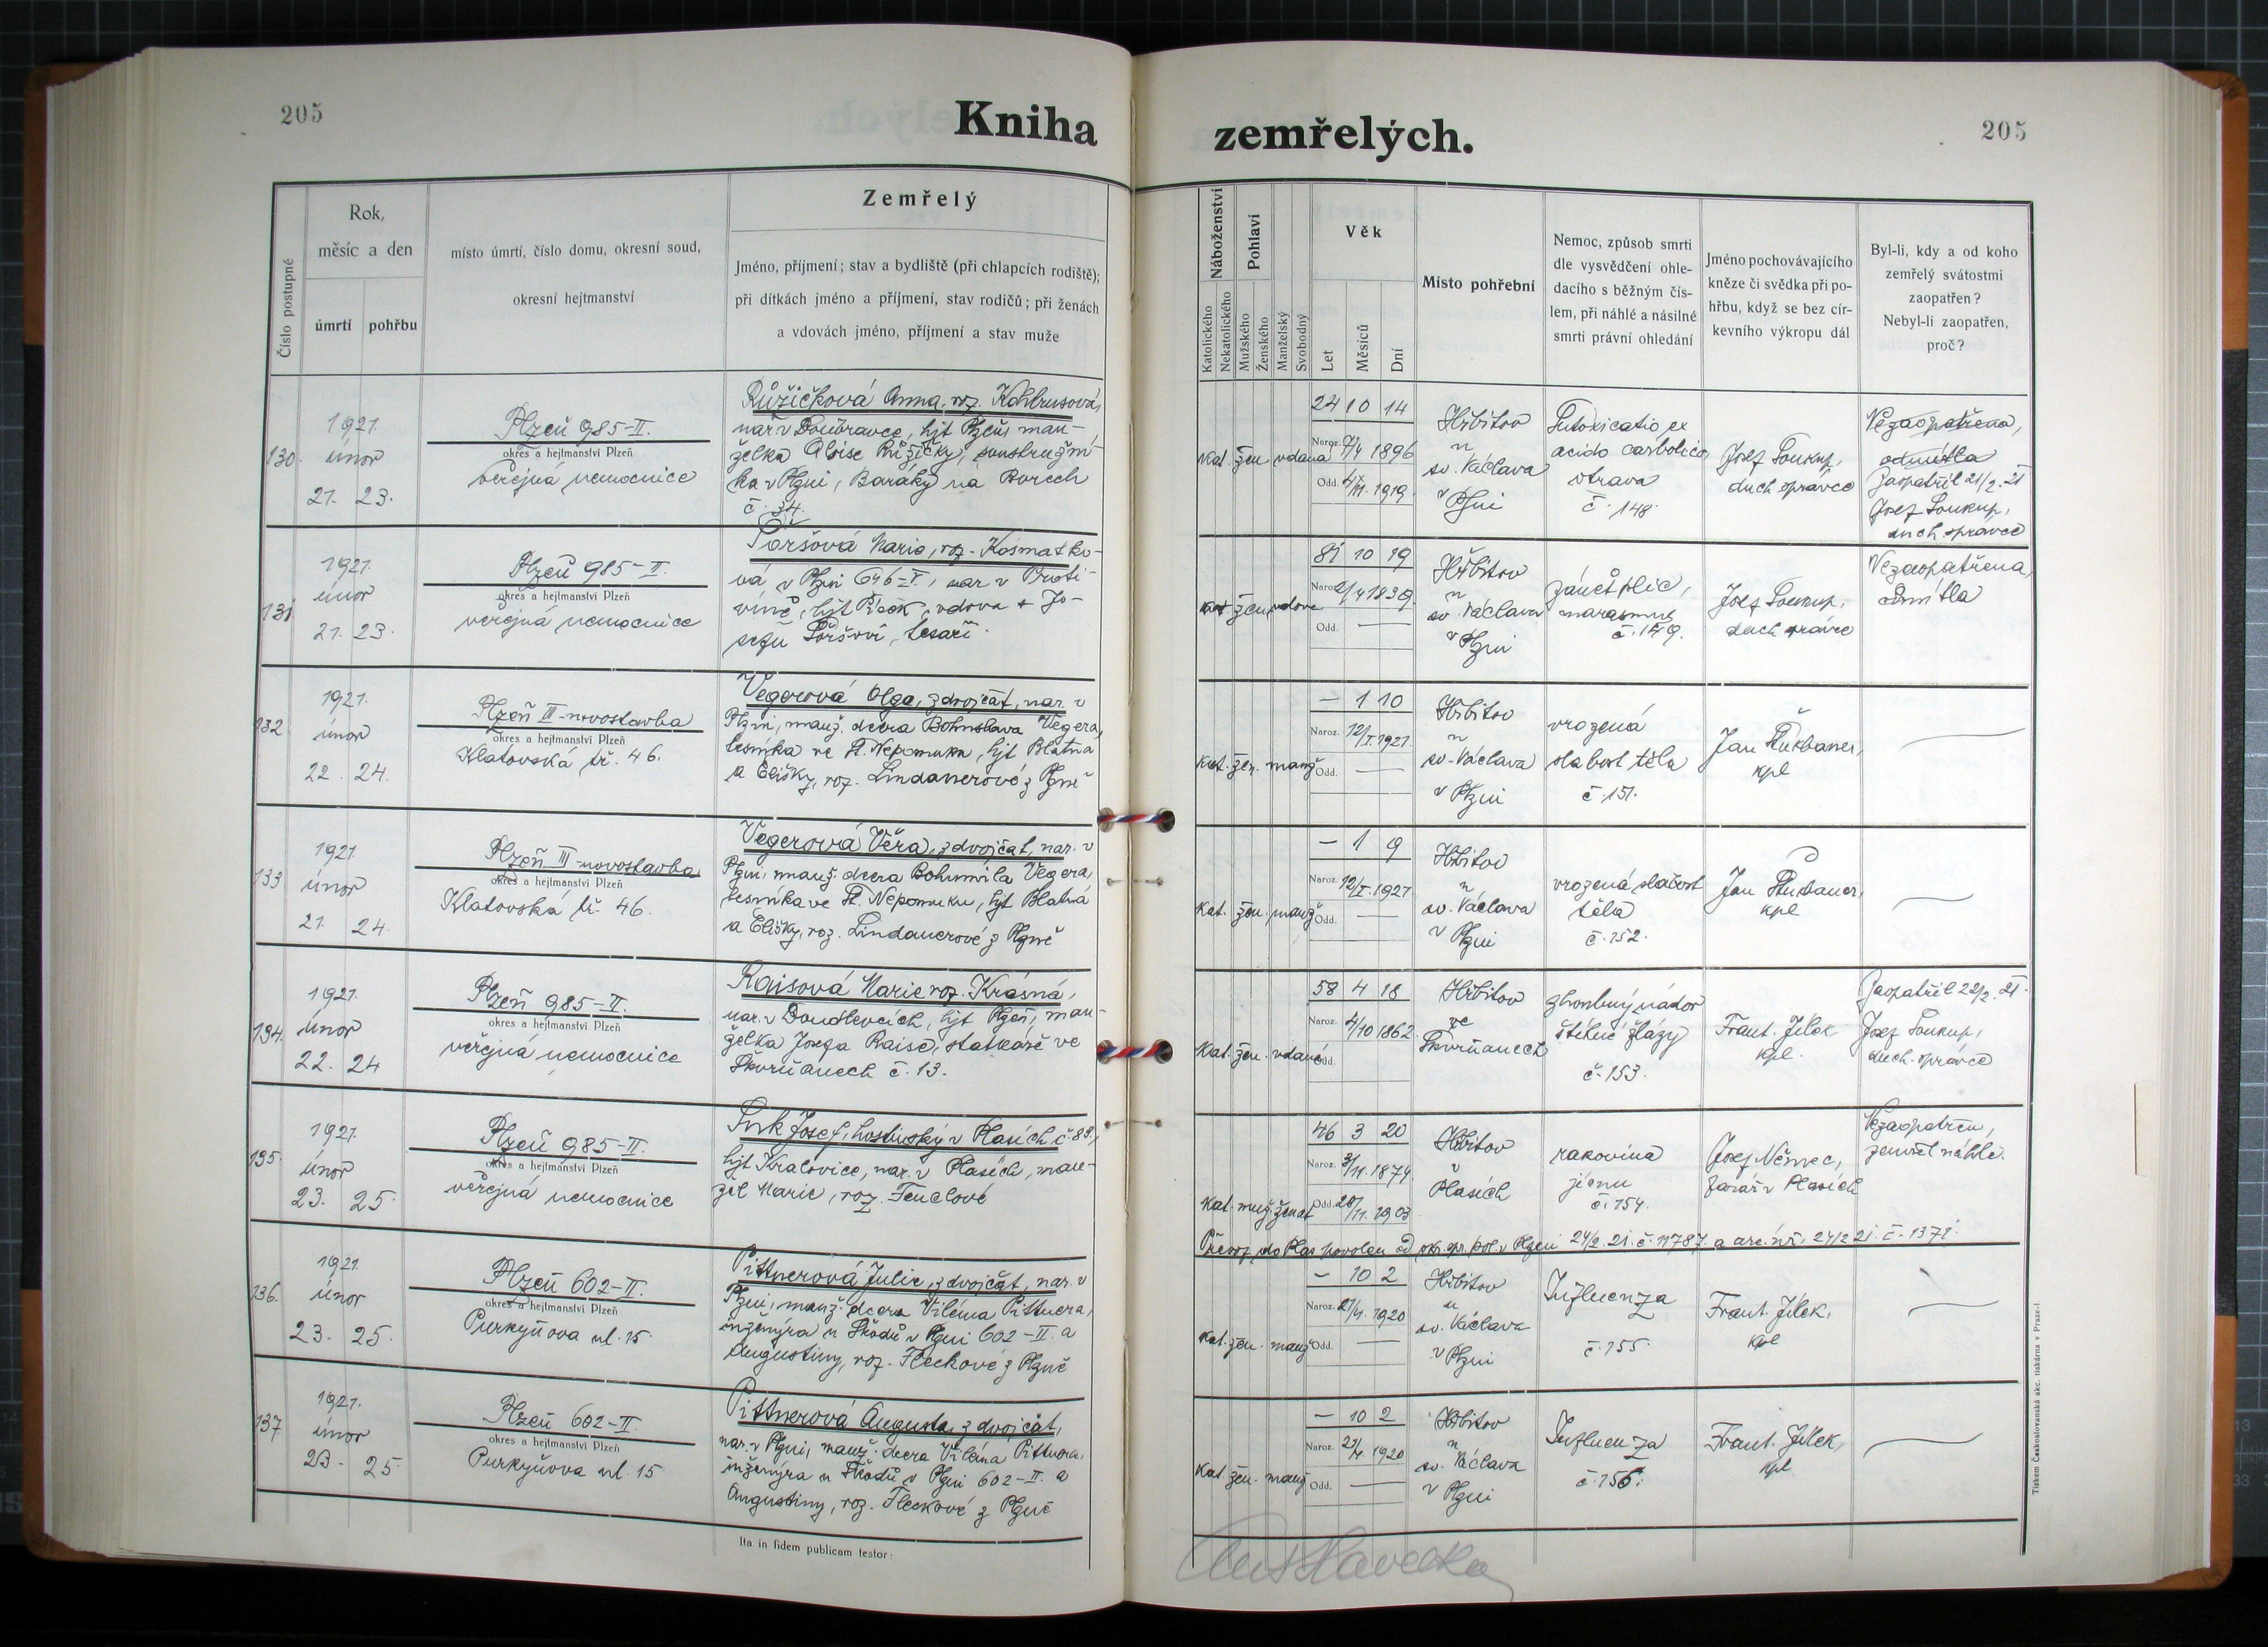 205
Kniha
zemřelých.
205
Číslo postupné
Rok,
měsíc a den
úmrtí
pohřbu
místo úmrtí, číslo domu, okresní soud,
okresní hejtmanství
Zemřelý
Jméno, příjmení; stav a bydliště (při chlapcích rodiště);
při dítkách jméno a příjmení, stav rodičů; při ženách
a vdovách jméno, příjmení a stav muže
Náboženství
Katolického
Nekatolického
Pohlaví
Mužského
Ženského
Manželský
Svobodný
Věk
Let
Měsíců
Dní
Místo pohřební
Nemoc, způsob smrti
dle vysvědčení ohle-
dacího s běžným čís-
lem, při náhlé a násilné
smrti právní ohledání
Jméno pochovávajícího
kněze či svědka při po-
hřbu, když se bez cír-
kevního výkropu dál
Byl-li, kdy a od koho
zemřelý svátostmi
zaopatřen?
Nebyl-li zaopatřen,
proč?
130.
1921.
únor
21. 23.
Plzeň 985-II.
okres a hejtmanství Plzeň
veřejná nemocnice
Růžičková Anna, roz.
nar. v Doubravce, hjt Plzeň, man-
želka Aloise Růžičky, soustružní-
ka v Plzni, Baráky na Borech
č. 34.
Kat. žen vdaná
24 10 14
Naroz. 7/4 1896
Odd. 4/III. 1919.
Hřbitov
u
sv. Václava
v Plzni
Intoxicatio ex
acido carbolico
otrava
č. 148.
Josef Soukup,
duch správce
Nezaopatřena,
odmítla
Zaopatřil 21/2. 21
Josef Soukup,
duch správce
131
1921.
únor
21. 23.
Plzeň 985-II.
okres a hejtmanství Plzeň
veřejná nemocnice
Marie, roz. Kosmatko-
vá v Plzni 646-V., nar v Proti-
víně, hjt Písek, vdova + Jo-
sefu tesaři.
Kat žen vdova
81 10 19
Naroz. 2/4 1839
Odd. —
Hřbitov
u
sv. Václava
v Plzni
zánět plic,
marasmus
č. 149.
Josef Soukup,
duch správce
Nezaopatřena,
odmítla
132
1921.
únor
22. 24.
Plzeň III-novostavba
okres a hejtmanství Plzeň
Klatovská tř. 46.
Vegerová Olga, z dvojčat, nar. v
Plzni, manž. dcera Bohuslava Vegera,
lesníka ve St. Nepomuku, hjt Blatná
a Elišky, roz. Lindauerové z Plzně
Kat. žen. manž
— 1 10
Naroz. 12/I. 1921.
Odd. —
Hřbitov
u
sv. Václava
v Plzni
vrozená
slabost těla
č. 151.
Jan
kpl
133
1921
únor
21. 24.
Plzeň III-novostavba
okres a hejtmanství Plzeň
Klatovská tř. 46.
Vegerová Věra, z dvojčat, nar. v
Plzni, manž. dcera Bohumila Vegera,
lesníka ve St. Nepomuku, hjt Blatná
a Elišky, roz. Lindauerové z Plzně
Kat. žen. manž
— 1 9
Naroz. 12/I. 1921
Odd. —
Hřbitov
u
sv. Václava
v Plzni
vrozená slabost
těla
č. 152.
Jan
kpl
134.
1921.
únor
22. 24
Plzeň 985-II.
okres a hejtmanství Plzeň
veřejná nemocnice
Raisová Marie roz. Krásná,
nar. v Doudlevcích, hjt Plzeň, man-
želka Josefa Raise, statkáře ve
Skvrňanech č. 13.
Kat. žen. vdaná
58 4 18
Naroz. 4/10 1862
Odd.
Hřbitov
ve
Skvrňanech
zhoubný nádor
štítné žlázy
č. 153.
Frant. Jílek
kpl.
Zaopatřil 22/2. 21.
Josef Soukup,
duch. správce
135.
1921.
únor
23. 25.
Plzeň 985-II.
okres a hejtmanství Plzeň
veřejná nemocnice
Josef, hostinský v Plasích č. 83,
hjt Kralovice, nar. v Plasích, man-
žel Marie, roz. Fenclové
Kat. muž. ženat
46 3 20
Naroz. 3/11. 1874
Odd. 28/11. 1903
Hřbitov
v
Plasích
rakovina
jícnu
č. 154.
Josef Němec,
farář v Plasích
Nezaopatřen,
zemřel náhle.
Převoz do Plas povolen od okr. spr. pol. v Plzni 24/2. 21. č. 11787. a 24/2 21. č. 1371.
136.
1921.
únor
23. 25.
Plzeň 602-II.
okres a hejtmanství Plzeň
Purkyňova ul. 15.
Pittnerová Julie, z dvojčat, nar. v
Plzni, manž. dcera Viléma Pittnera,
inženýra u Škodů v Plzni 602-II. a
Augustiny, roz. Fleckové z Plzně
Kat. žen. manž
— 10 2
Naroz. 21/4. 1920
Odd. —
Hřbitov
u
sv. Václava
v Plzni
Influenza
č. 155.
Frant. Jílek,
kpl
137
1921.
únor
23. 25.
Plzeň 602-II.
okres a hejtmanství Plzeň
Purkyňova ul. 15.
Pittnerová Augusta, z dvojčat,
nar. v Plzni, manž. dcera Viléma Pittnera,
inženýra u Škodů v Plzni 602-II. a
Augustiny, roz. Fleckové z Plzně
Kat. žen. manž
— 10 2
Naroz. 21/4 1920
Odd. —
Hřbitov
u
sv. Václava
v Plzni
Influenza
č. 156.
Frant. Jílek,
kpl
Ita in fidem publicam testor:
Tiskem Československá akc. tiskárna v Praze-I